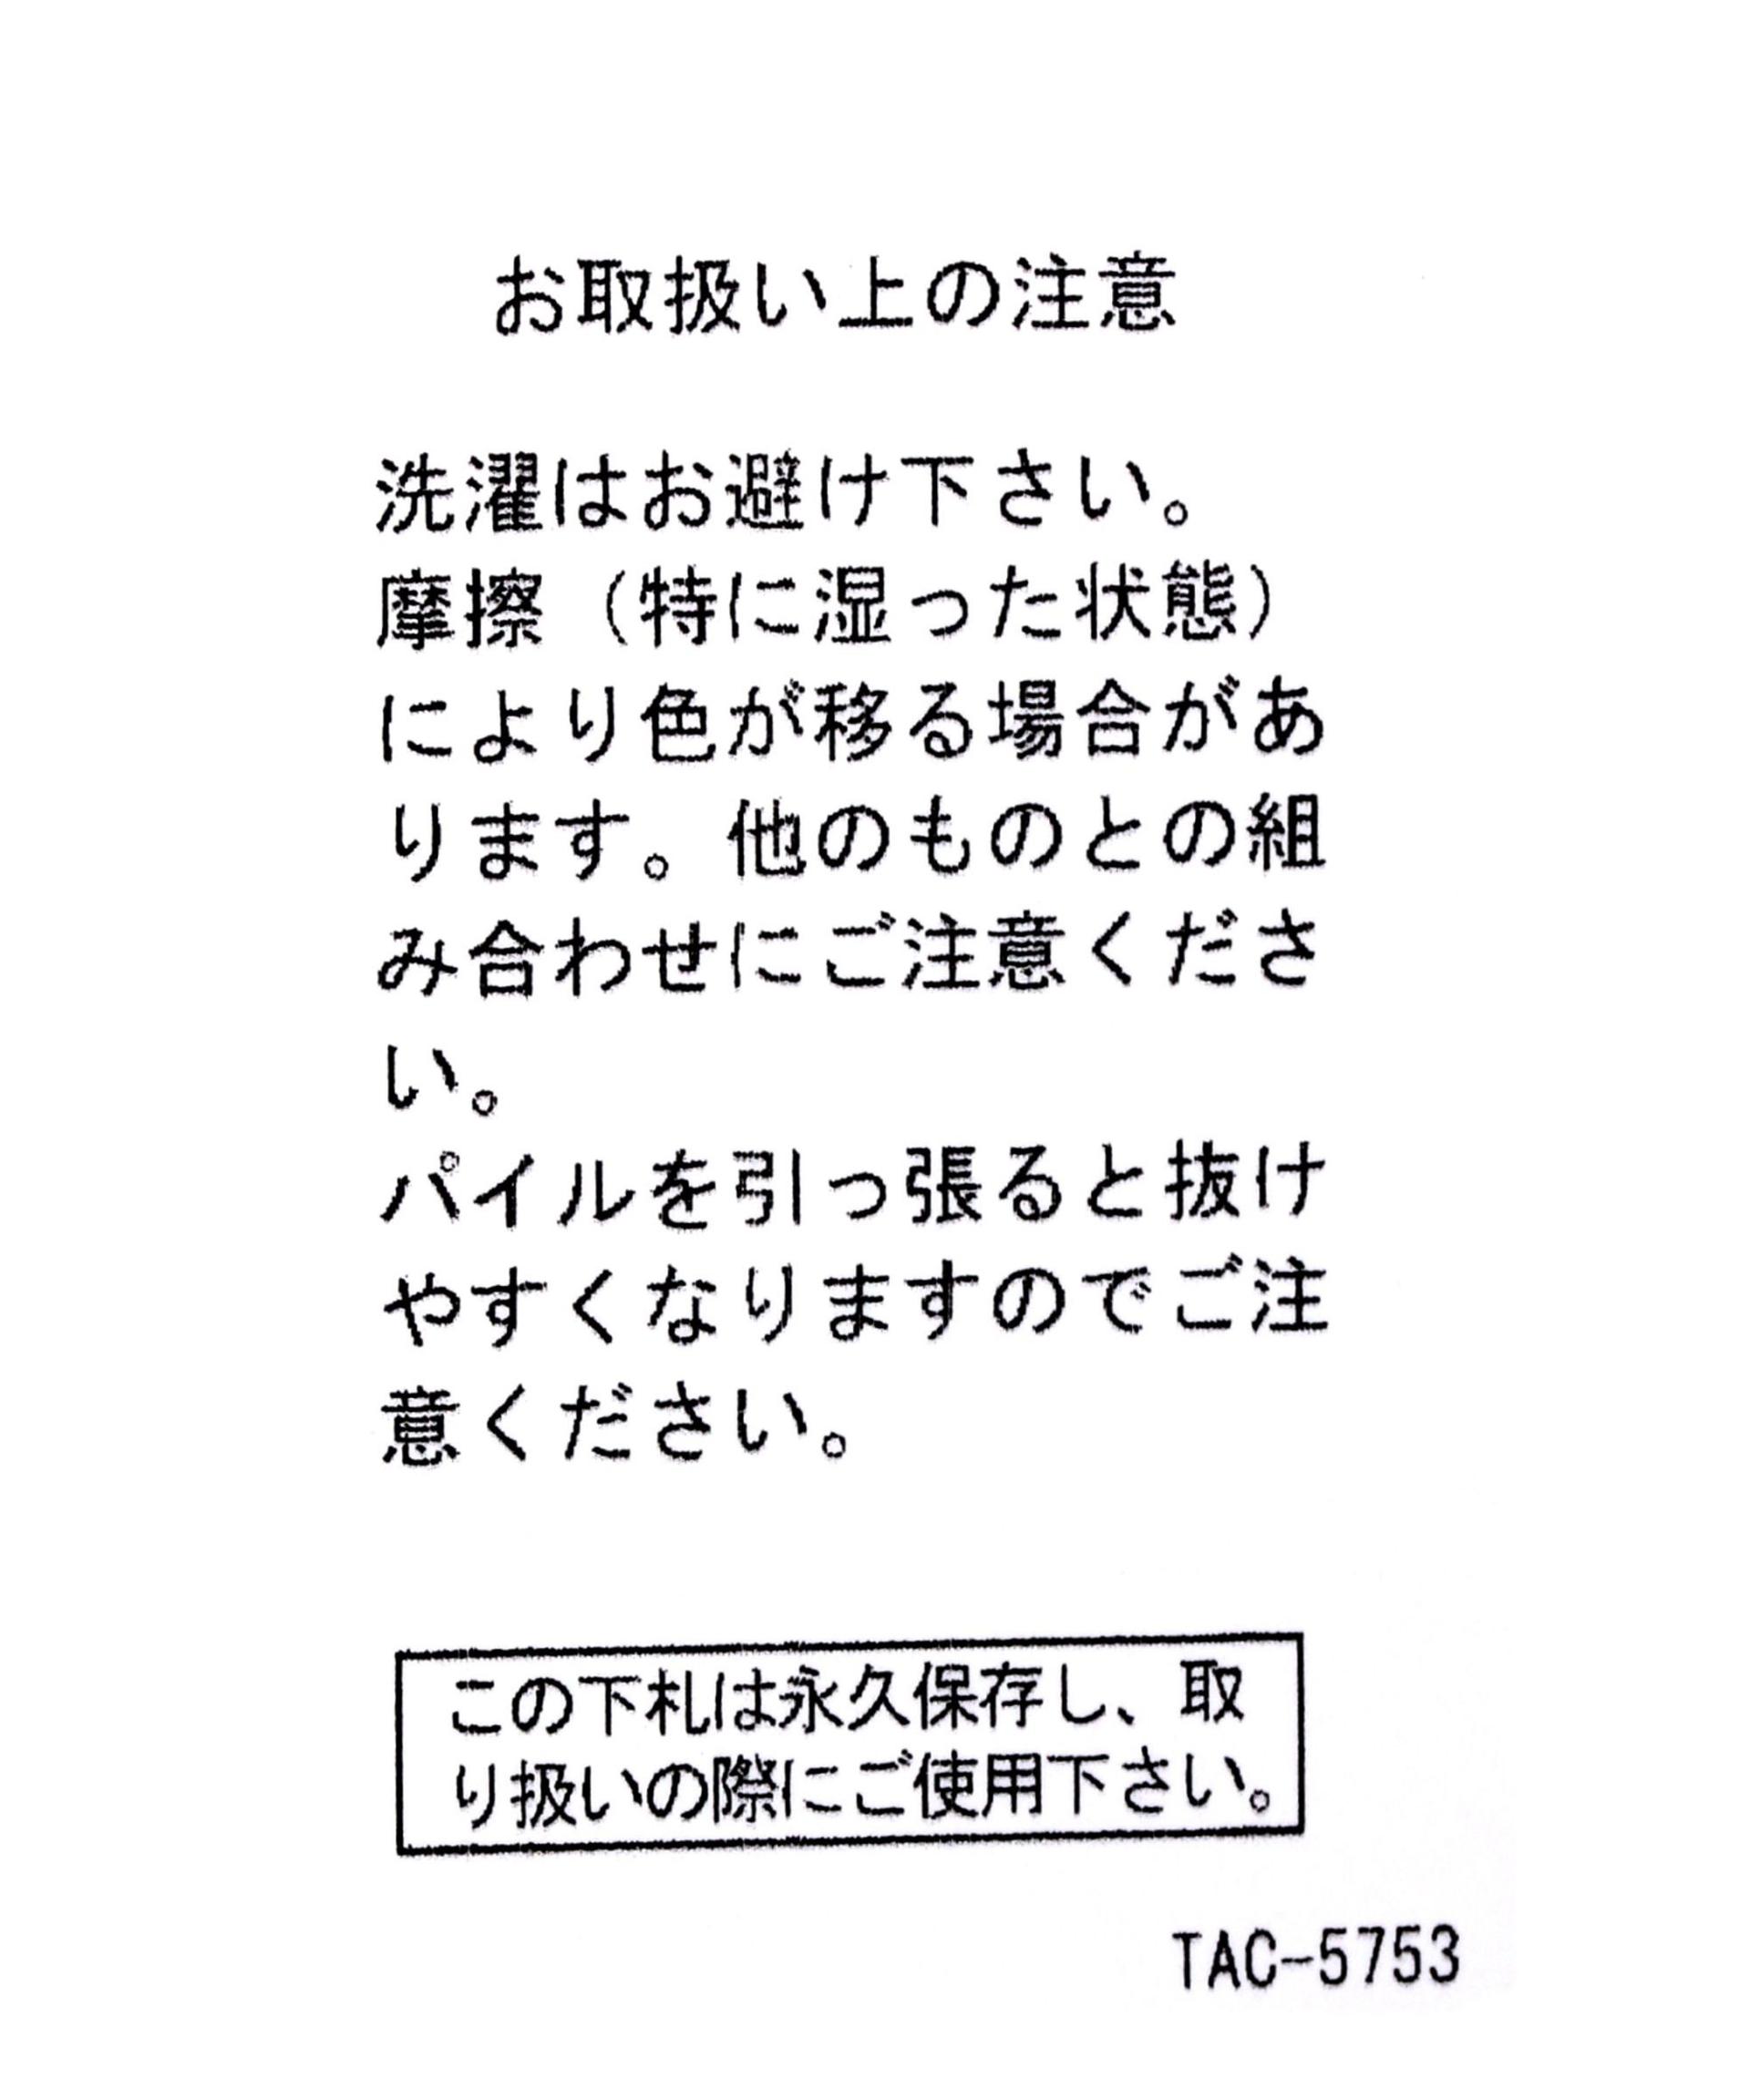 お取扱い上の注意
洗濯はお避け下さい。
摩擦（特に湿った状態）
により色が移る場合があ
ります。他のものとの組
み合わせにご注意くださ
い。
パイルを引っ張ると抜け
やすくなりますのでご注
意ください。
この下札は永久保存し、取
り扱いの際にご使用下さい。
TAC-5753